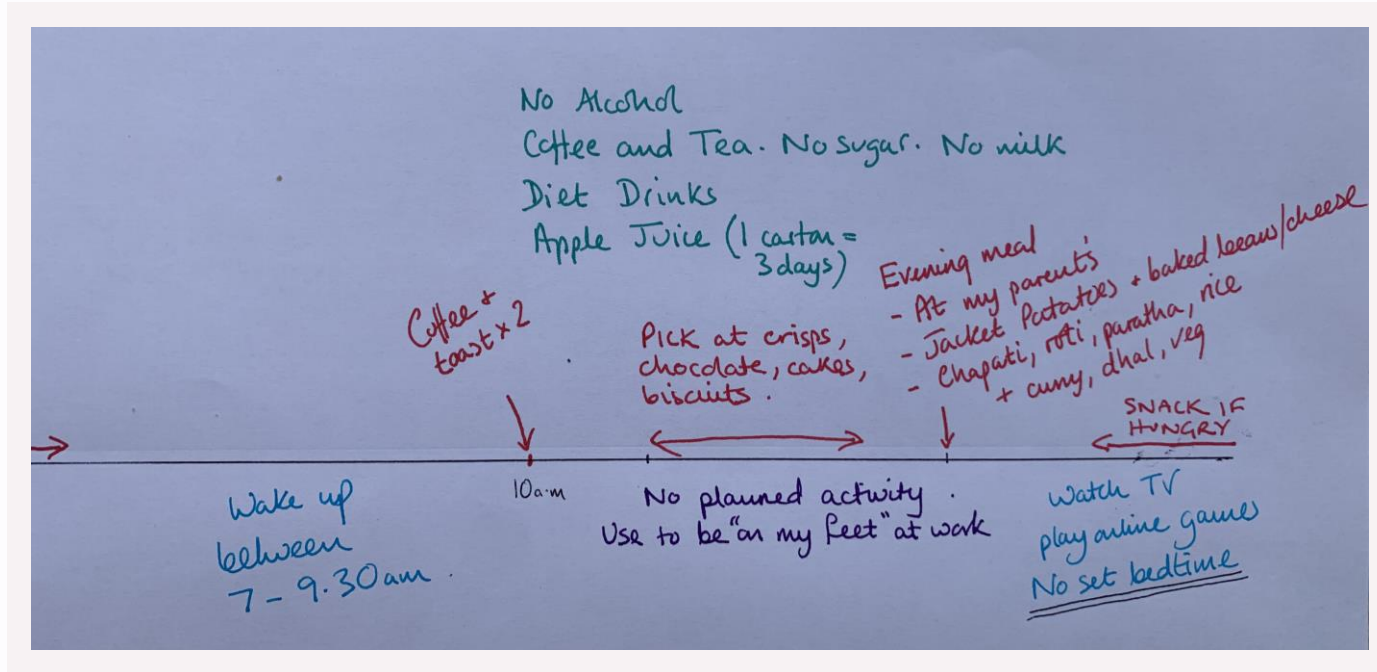 No Alcohol
Coffee and Tea. No sugar. No milk
Diet Drinks
Apple Juice (1 carton =
3 days)
Coffee +
toast x 2
Pick at crisps,
chocolate, cakes,
biscuits.
Evening meal
- At my parent's
- Jacket Potatoes + baked beans/cheese
- Chapati, roti, paratha, rice
+ curry, dhal, veg
SNACK IF
HUNGRY
Wake up
between
7 - 9.30am.
10a.m
No planned activity.
Use to be "on my feet" at work
Watch TV
play online games
No set bedtime